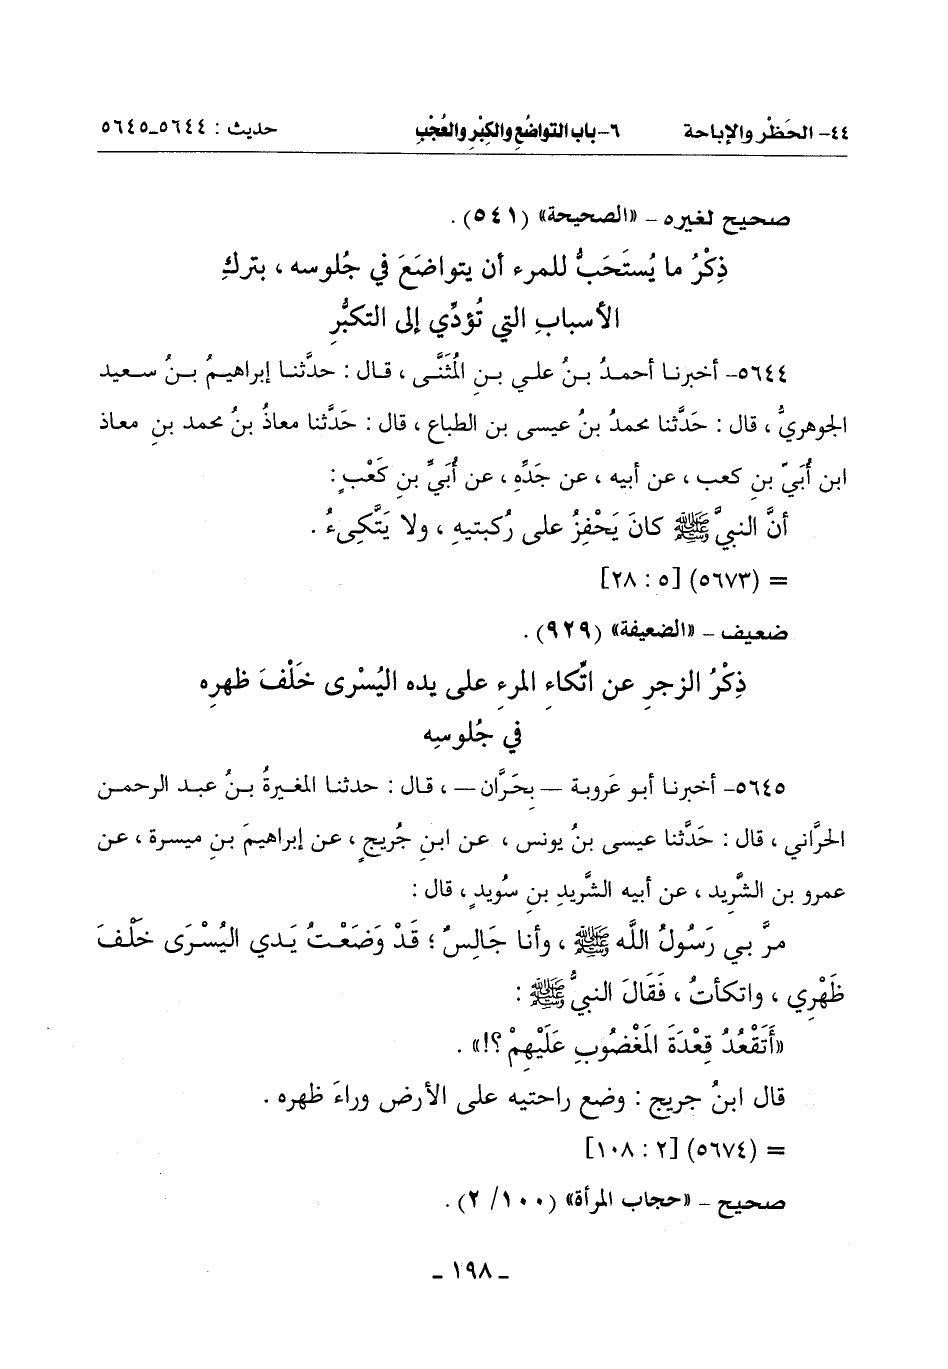 ٤٤- الحَظْر والإباحة ٦- باب التواضُعِ والكِبْرِ والعُجْبِ حديث : ٥٦٤٤-٥٦٤٥
صحيح لغيره - «الصحيحة» (٥٤١) .
ذِكْرُ ما يُستَحَبُّ للمرء أن يتواضَعَ في جُلوسه ، بتركِ
الأسبابِ التي تُؤدِّي إلى التكبُّرِ
٥٦٤٤- أخبرنا أحمدُ بنُ علي بنِ المُثَنَّى ، قال : حدَّثنا إبراهيمُ بنُ سعيد
الجوهريُّ ، قال : حَدَّثنا محمدُ بنُ عيسى بن الطباع ، قال : حَدَّثنا معاذُ بنُ محمد بنِ معاذ
ابن أُبَيّ بنِ كعب ، عن أبيه ، عن جَدِّهِ ، عن أُبَيِّ بنِ كَعْبٍ :
أنَّ النبيَّ ﷺ كانَ يَحْفِزُ على رُكبتيهِ ، ولا يَتَّكِىءُ .
= (٥٦٧٣) [٥ : ٢٨]
ضعيف - «الضعيفة» (٩٢٩) .
ذِكْرُ الزجرِ عن اتِّكاءِ المرءِ على يده اليُسْرى خلْفَ ظهرِه
في جُلوسِه
٥٦٤٥- أخبرنا أبو عَروبة – بِحَرَّان – ، قال : حدثنا المغيرةُ بنُ عبد الرحمن
الحرَّاني ، قال : حَدَّثنا عيسى بنُ يونس ، عن ابنِ جُريجٍ ، عن إبراهيمَ بنِ ميسرة ، عن
عمرو بن الشَّريد ، عن أبيه الشَّريدِ بنِ سُويدٍ ، قال :
مرَّ بي رَسُولُ اللَّه ﷺ ، وأنا جَالِسٌ ؛ قَدْ وَضَعْتُ يَدي اليُسْرَى خَلْفَ
ظَهْرِي ، واتكأتُ ، فَقَالَ النبيُّ ﷺ :
«أَتَقْعُدُ قِعْدَةَ المَغْضُوبِ عَلَيْهِمْ ؟!» .
قال ابنُ جريج : وضع راحتيه على الأرض وراءَ ظهره .
= (٥٦٧٤) [٢ : ١٠٨]
صحيح - «حجاب المرأة» (١٠٠/ ٢) .
- ١٩٨ -